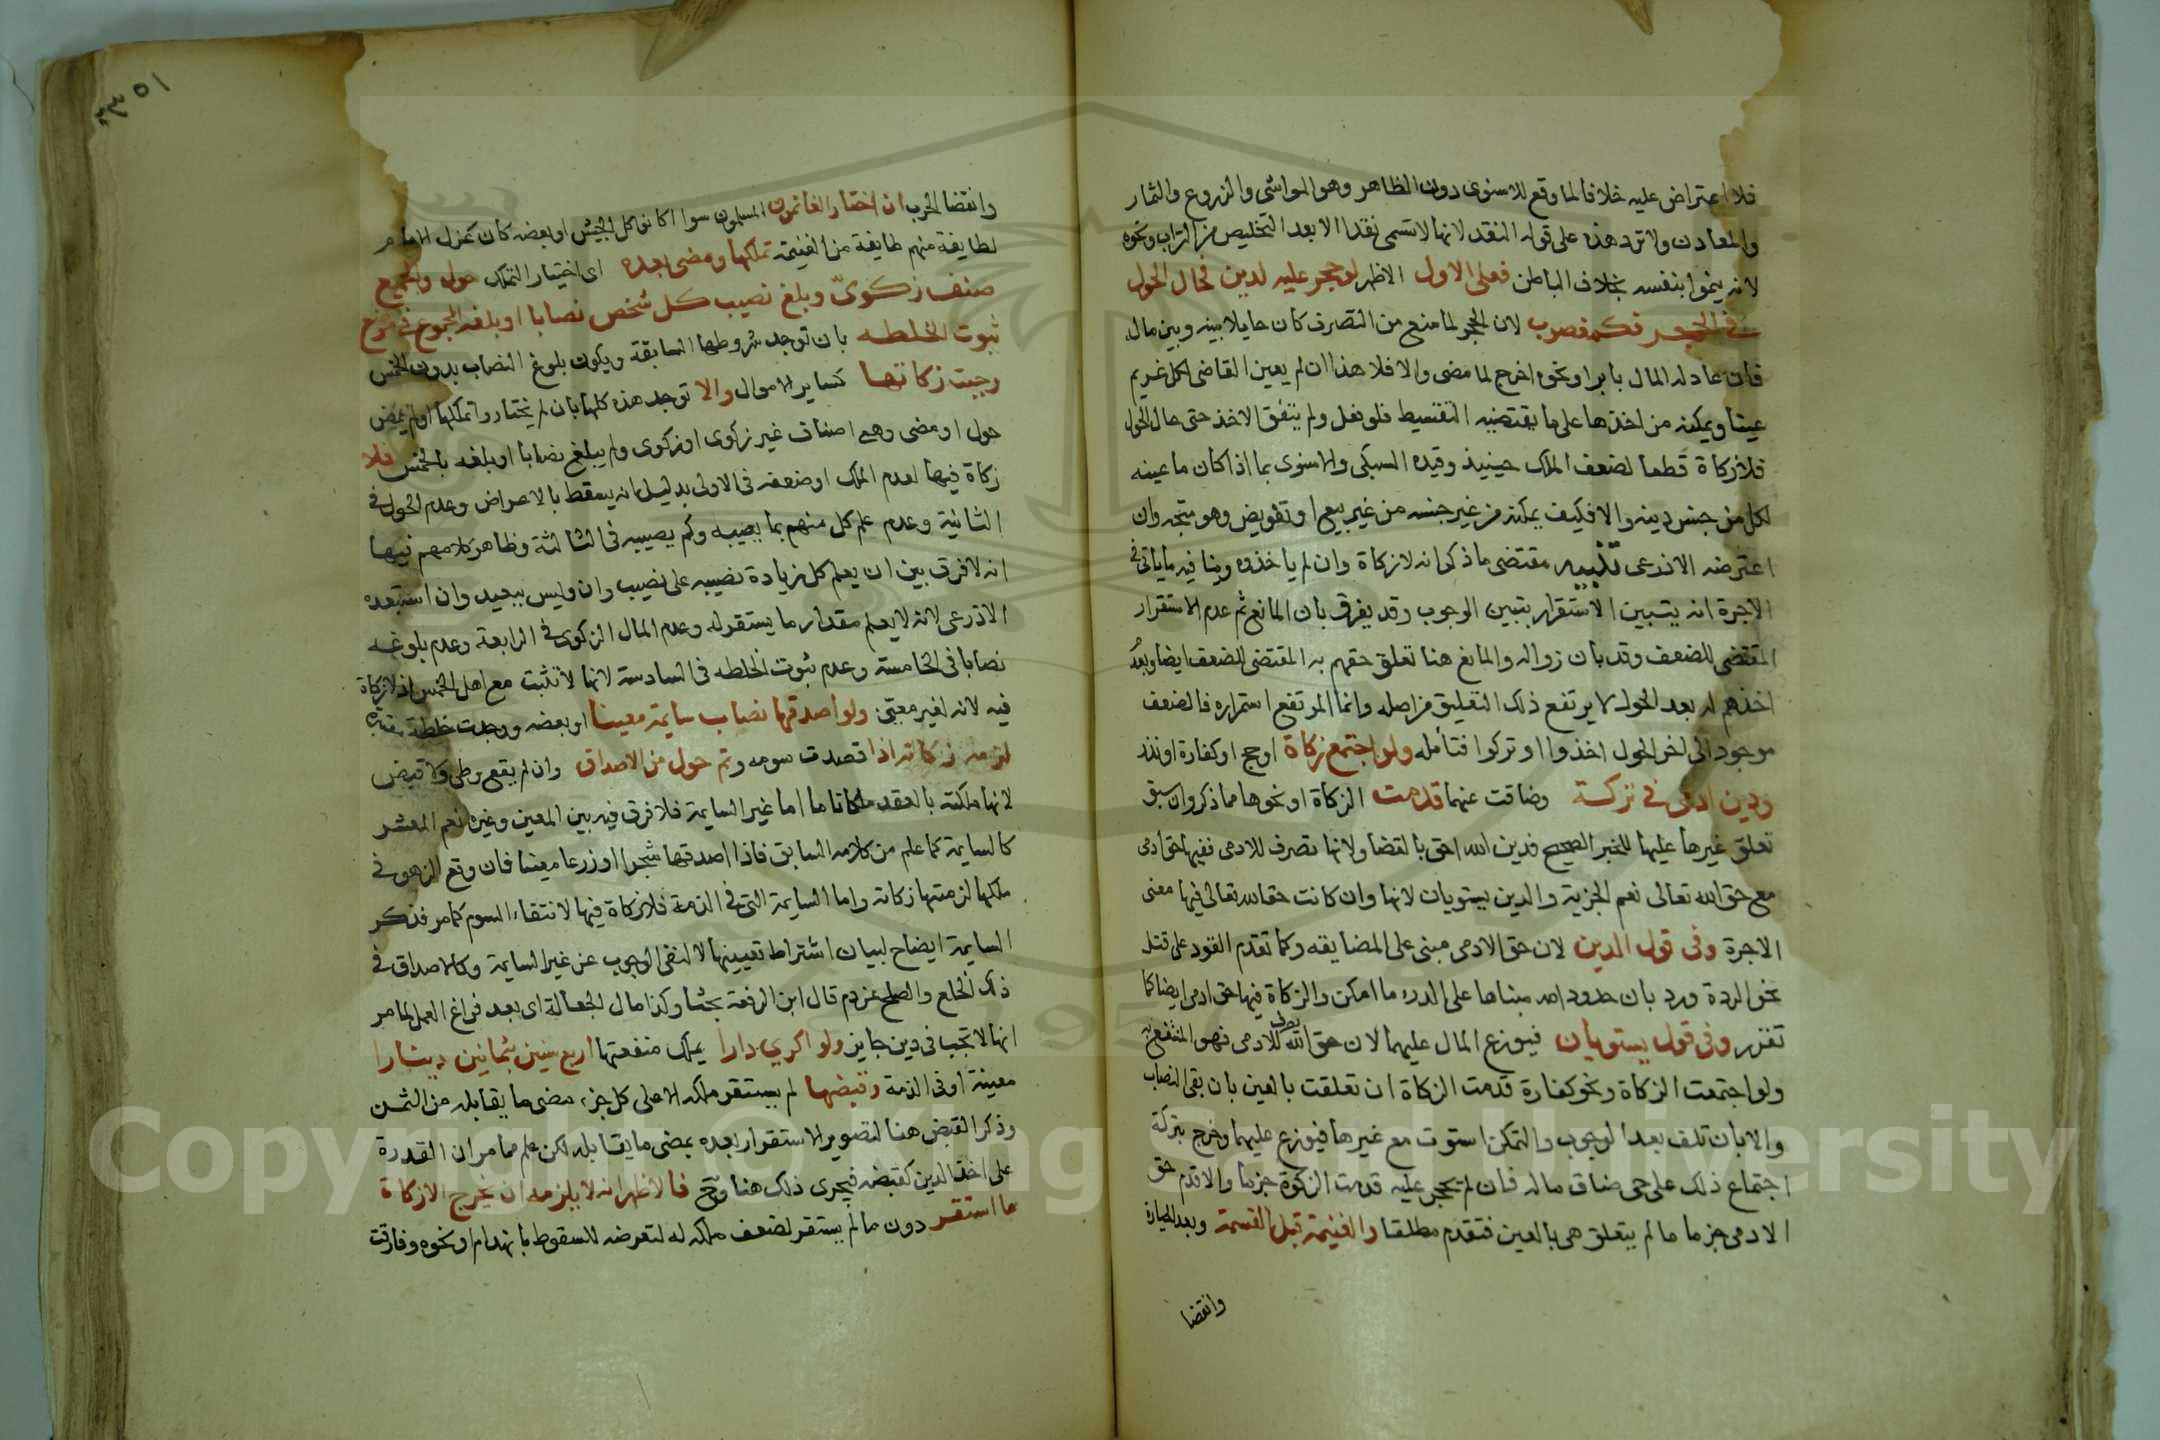 فلا اعتراض عليه خلافا لما وقع للاسنوى دون الظاهر وهو المواشى والزروع والثمار
والمعادن ولا ترد هذه على قوله النقد لانها لا تسمى نقدا الا بعد التخليص من التراب ونحوه
لانه ينموا بنفسه بخلاف الباطن فعلى الاول الاظهر لو حجر عليه لدين فحال الحول
فى الحجر فكمغصوب لان الحجر لما منع من التصرف كان حايلا بينه وبين ماله
فان عاد له المال بابرا ونحوه اخرج لما مضى والا فلا هذا ان لم يعين القاضى لكل غريم
عينا ويمكنه من اخذها على ما يقتضيه التقسيط فلو فعل ولم يتفق الاخذ حتى حال الحول
فلا زكاة قطعا لضعف الملك حينيذ وقيده السبكى والاسنوى بما اذا كان ما عينه
لكل من جنس دينه والا فكيف يمكنه من غير جنسه من غير بيع او تعويض وهو متجه وان
اعترضه الاذرعى تنبيه مقتضى ما ذكر انه لا زكاة وان لم ياخذوه وينا فيه ما ياتى فى
الاجرة انه يتبين الاستقرار يتبين الوجوب وقد يفرق بان المانع ثم عدم الاستقرار
المقتضى للضعف وقد بان زواله والمانع هنا تعلق حقهم به المقتضى للضعف ايضا وبعد
اخذهم له بعد الحول لا يرتفع ذلك التعليق من اصله وانما المرتفع استمراره فالضعف
موجود الى اخر الحول اخذوا او تركوا فتأمله ولو اجتمع زكاة او حج او كفارة او نذر
ودين ادمى فى تركة وضاقت عنهما قدمت الزكاة او نحوها مما ذكر وان سبق
تعلق غيرها عليها للخبر الصحيح فدين الله احق بالقضا ولانها تصرف للادمى ففيها حق ادمى
مع حق الله تعالى نعم الجزية والدين يستويان لانها وان كانت حقا لله تعالى فيها معنى
الاجرة وفى قول الدين لان حق الادمى مبنى على المضايقه وكما تقدم القود على قتل
نحو الردة ورد بان حدود الله مبناها على الدرء ما امكن والزكاة فيها حق ادمى ايضا كما
تقرر وفى قول يستويان فيوزع المال عليهما لان حق الله يصرف للادمى فهو المنتفع به
ولو اجتمعت الزكاة ونحو كفارة قدمت الزكاة ان تعلقت بالعين بان بقى النصاب
والا بان تلف بعد الوجوب والتمكن استوت مع غيرها فيوزع عليهما وخرج بتركة
اجتماع ذلك على حى ضاق ماله فان لم يحجر عليه قدمت الزكوة جزما والا قدم حق
الادمى جزما ما لم يتعلق هى بالعين فتقدم مطلقا والغنيمة قبل القسمة وبعد الحيازة
وانقضا
١٥
وانقضا الحرب ان اختار الغانمون المسلمون سوا اكانوا كل الجيش او بعضه كان عزل الامام
لطايفة منهم طايفة من الغنيمة تملكها ومضى بعده اى اختيار التملك حول والجميع
صنف زكوىّ وبلغ نصيب كل شخص نصابا او بلغه المجموع فى موضع
ثبوت الخلطه بان توجد شروطها السابقة ويكون بلوغ النصاب بدون الخمس
وجبت زكاتها كساير الاموال والا توجد هذه كلها بان لم يختاروا تملكها او لم يمض
حول او مضى وهى اصناف غير زكوى او زكوى ولم يبلغ نصابا او بلغه بالخمس فلا
زكاة فيها لعدم الملك او ضعفه فى الاولى بدليل انه يسقط بالاعراض وعدم الحول فى
الثانية وعدم علم كل منهم بما يصيبه وكم يصيبه فى الثالثة وظاهر كلامهم فيها
انه لا فرق بين ان يعلم كل زيادة نصيبه على نصيب وان وليس ببعيد وان استبعده
الاذرعى لانه لا يعلم مقدار ما يستقر له وعدم المال الزكوى فى الرابعة وعدم بلوغه
نصابا فى الخامسة وعدم ثبوت الخلطه فى السادسة لانها لا تثبت مع اهل الخمس اذ لا زكاة
فيه لانه لغير معيّن ولو اصدقها نصاب سايمة معينا او بعضه ووجدت خلطة معتبرة
لزمه زكاته اذا قصدت سومه وتم حول من الاصداق وان لم يقع وطى ولا قبض
لانها ملكته بالعقد ملكا تاما اما غير السايمة فلا فرق فيه بين المعين وغيره نعم المعشر
كالسايمة كما علم من كلامه السابق فاذا اصدقها شجرا او زرعا معينا فان وقع الزهو فى
ملكها لزمتها زكاته واما السايمة التى فى الذمة فلا زكاة فيها لانتفاء السوم كما مر فذكر
السايمة ايضاح لبيان اشتراط تعيينها لا لنفى الوجوب عن غير السايمة وكالاصداق فى
ذلك الخلع والصلح عن دم قال ابن الرفعة بحثا وكذا مال الجعالة اى بعد فراغ العمل لما مر
انها لا تجب فى دين جايز ولو اكرى دارا يملك منفعتها اربع سنين بثمانين دينارا
معينة او فى الذمة وقبضها لم يستقر ملكه الا على كل جزء مضى ما يقابله من الثمن
وذكر القبض هنا لتصوير الاستقرار بعده بمضى ما يقابله لكن علم مما مر ان القدرة
على اخذ الدين كقبضه فيجرى ذلك هنا وحّ فالاظهر انه لا يلزمه ان يخرج الا زكاة
ما استقر دون ما لم يستقر لضعف ملكه له لتعرضه للسقوط بانهدام او نحوه وفارقت
Copyright © King Saud University
1957